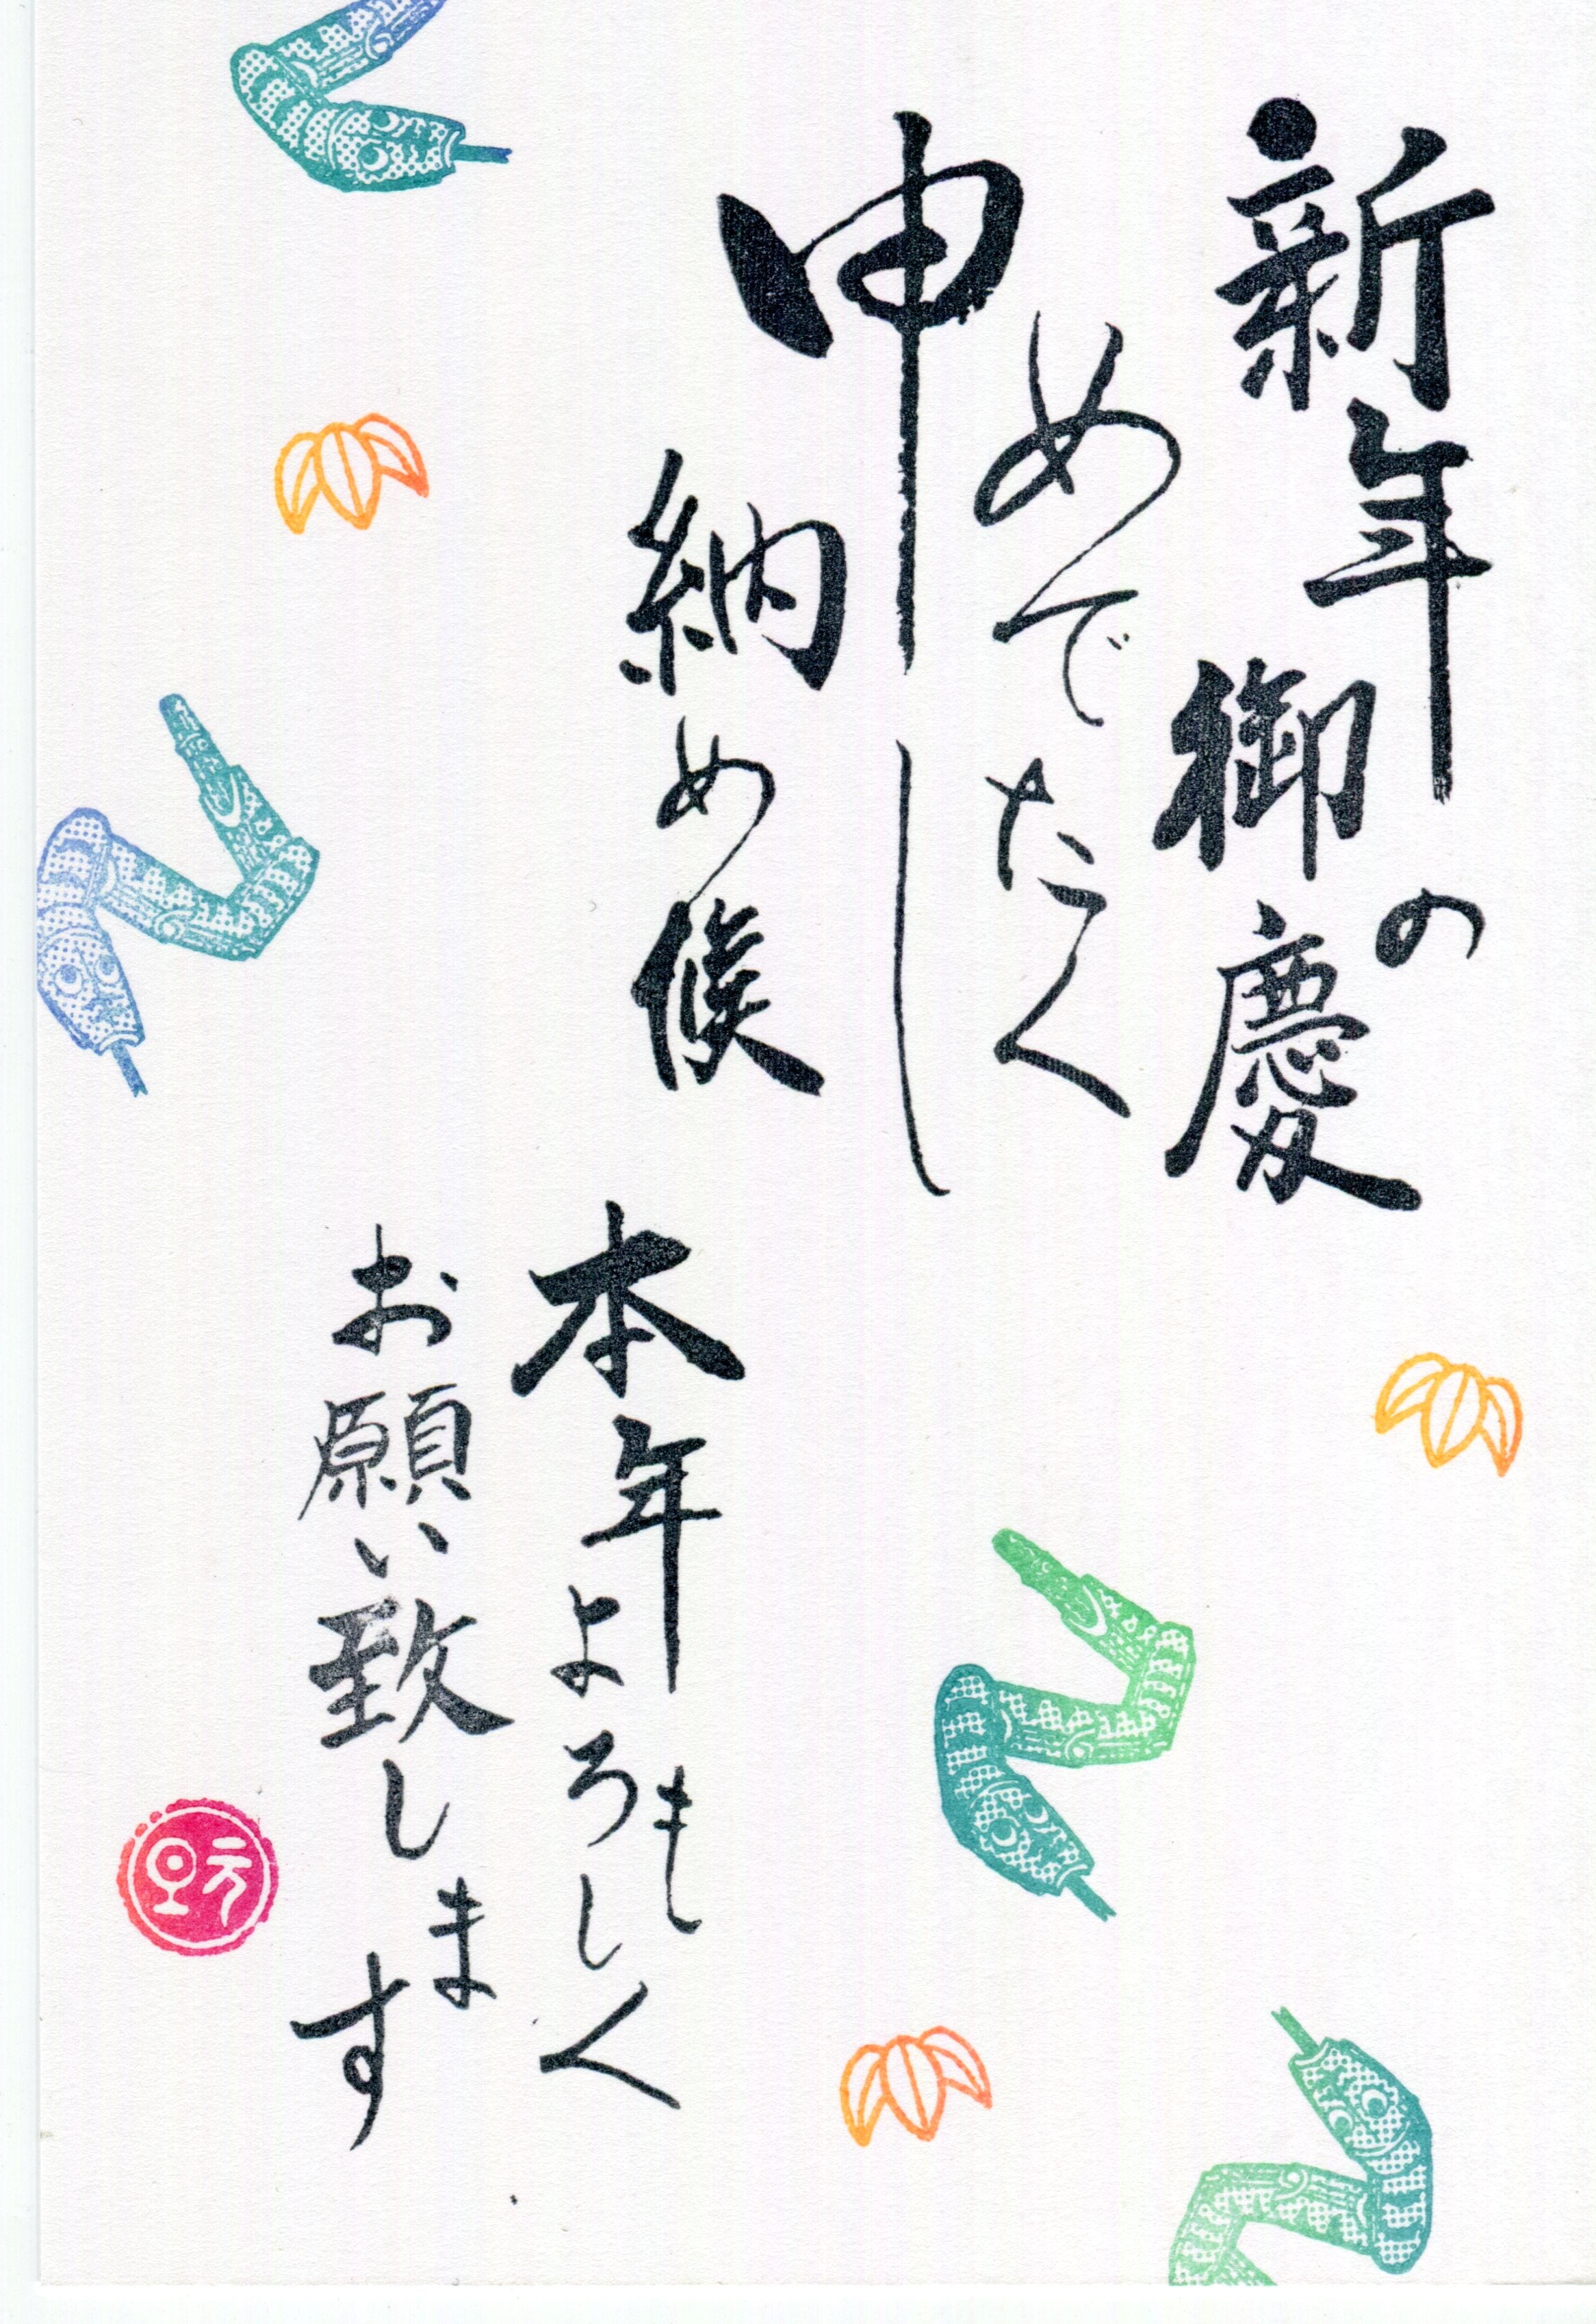 新年の
御慶
めでたく
申し
納め候
本年も
よろしく
お願い致しま
す